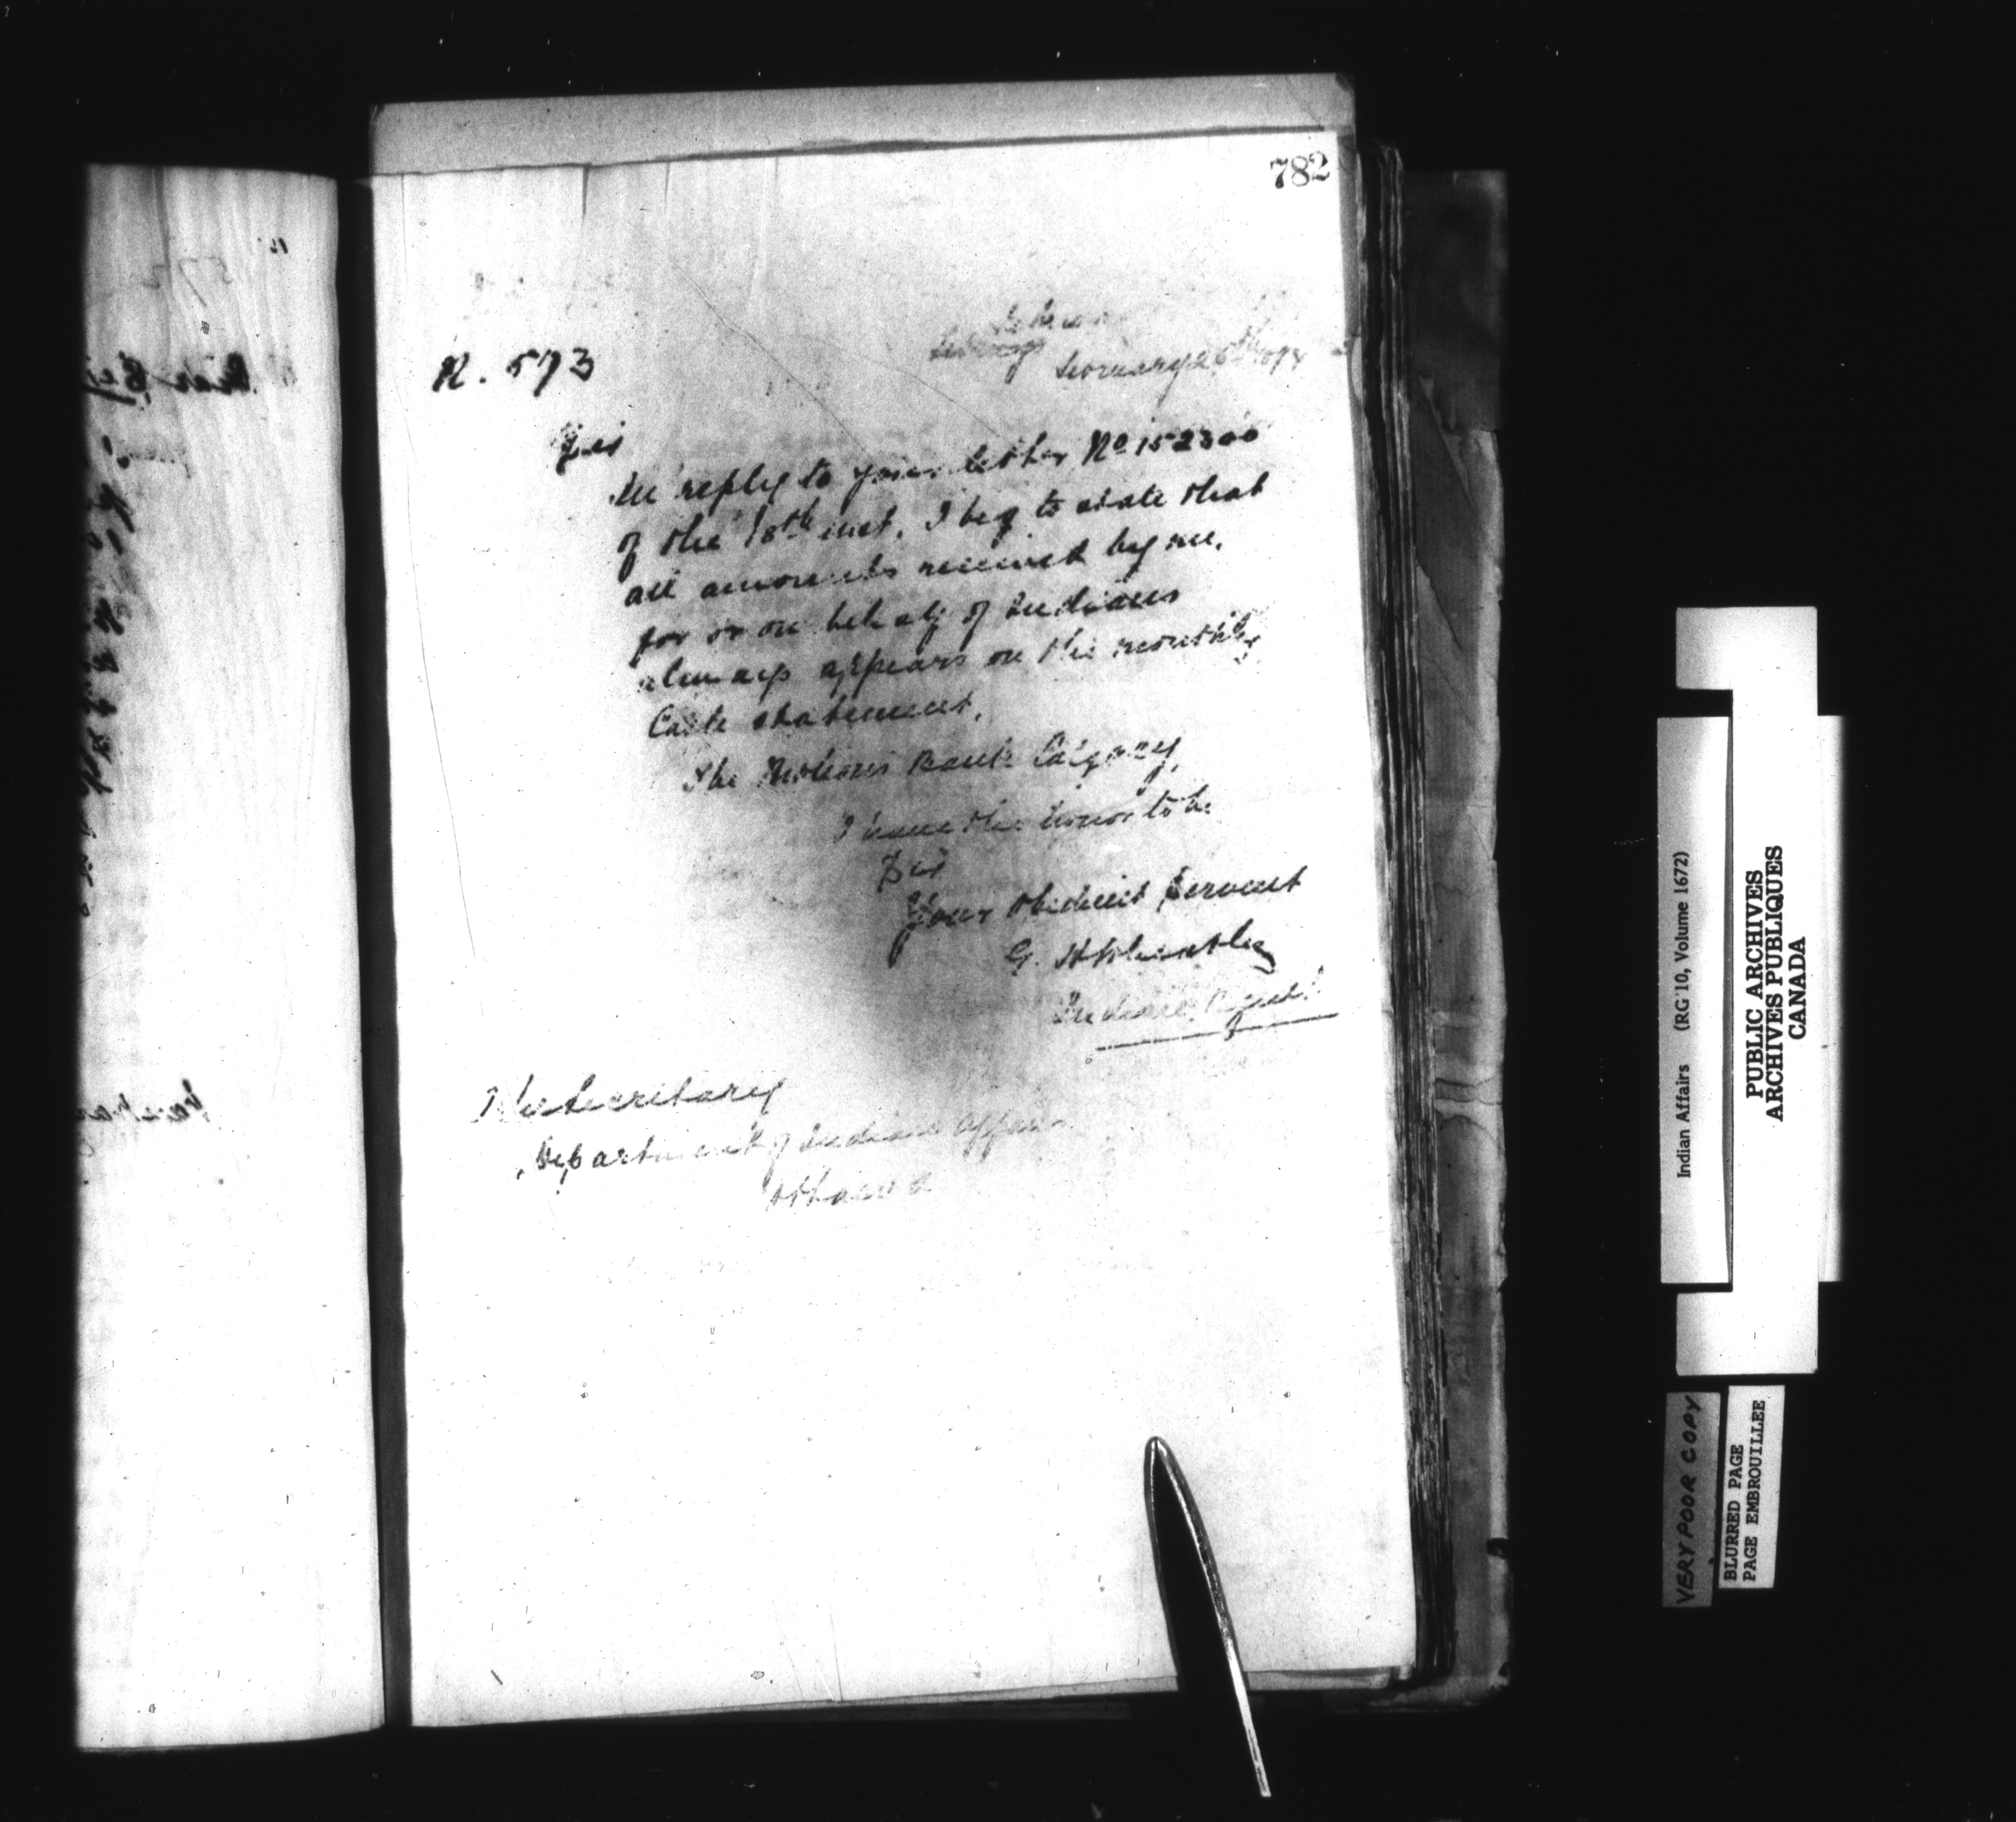 782
R. 573
February 26th
Sir
In reply to your letter No 152300
of the 18th inst, I beg to state that
all amounts received by me,
for or on behalf of Indians
always appears on the monthly
Cash statement.
The Molsons Bank Calgary,
I have the honor to be
Sir
Your Obedient Servant
G. H Wheatley
Indian Agent
The Secretary
Department of Indian Affairs
Ottawa
Indian Affairs (RG 10, Volume 1672)
PUBLIC ARCHIVES
ARCHIVES PUBLIQUES
CANADA
VERY POOR COPY
BLURRED PAGE
PAGE EMBROUILLEE